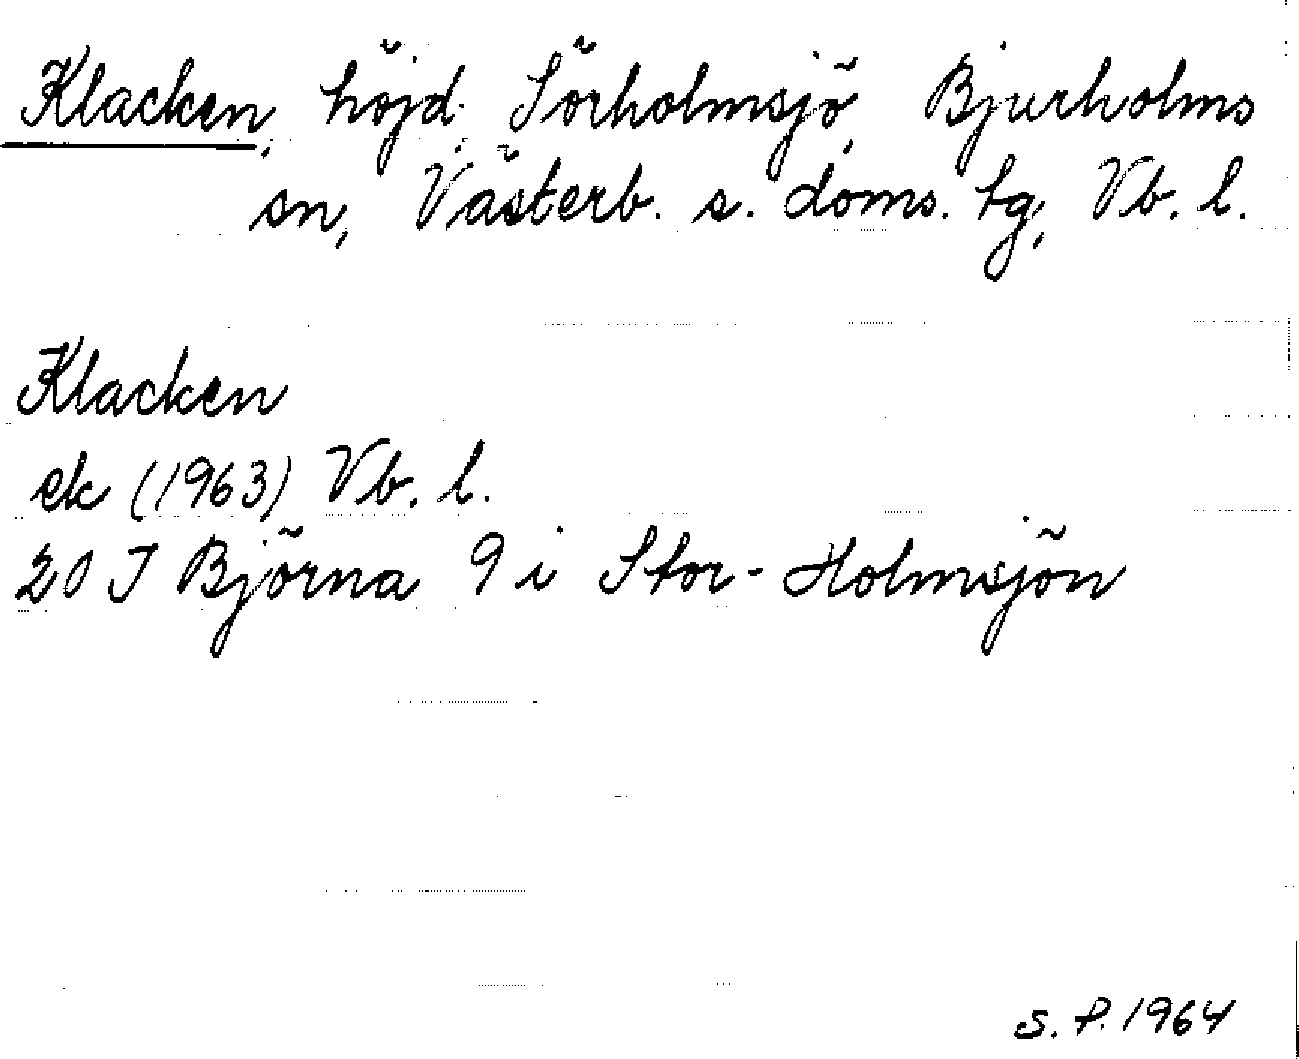 Klacken, höjd, Sörholmsjö, Bjurholms
sn, Västerb. s. doms. tg, Vb. l.
Klacken
ek (1963) Vb. l.
20 J Björna 9 i Stor-Holmsjön
S. P. 1964